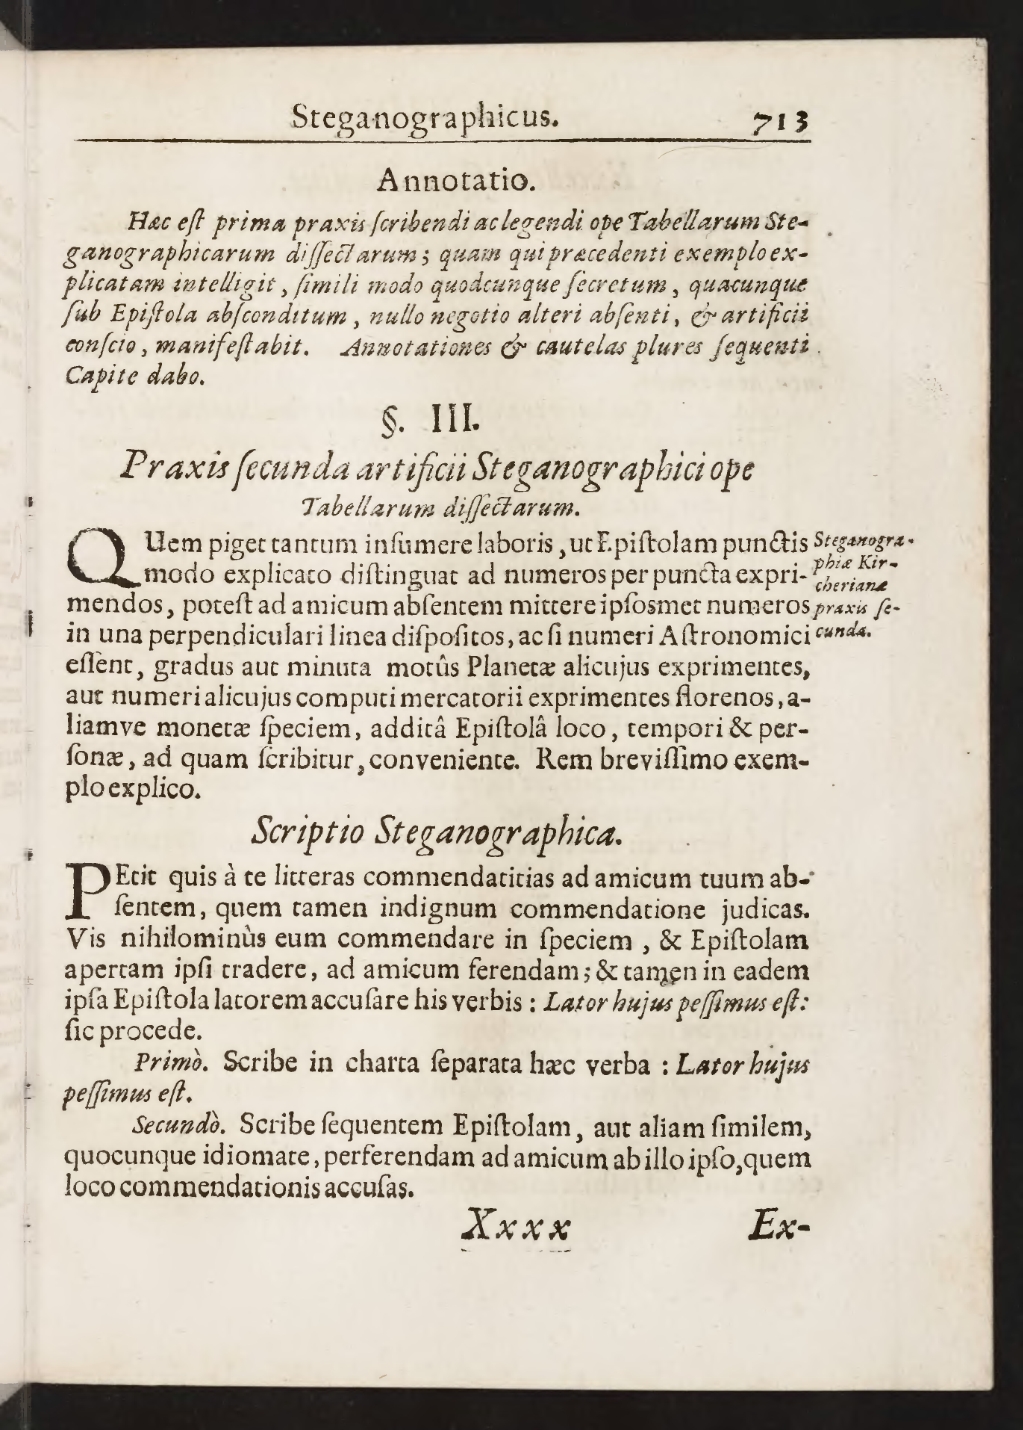 Steganographicus. 713
Annotatio.
Hæc eſt prima praxis ſcribendi ac legendi ope Tabellarum Ste-
ganographicarum diſſectarum; quam qui præcedenti exemplo ex-
plicatam intelligit, ſimili modo quodcunque ſecretum, quacunque
ſub Epiſtola abſconditum, nullo negotio alteri abſenti, & artificii
conſcio, manifeſtabit. Annotationes & cautelas plures ſequenti
Capite dabo.
§. III.
Praxis ſecunda artificii Steganographici ope
Tabellarum diſſectarum.
QUem piget tantum inſumere laboris, ut Epiſtolam punctis
modo explicato diſtinguat ad numeros per puncta expri-
mendos, poteſt ad amicum abſentem mittere ipſosmet numeros
in una perpendiculari linea diſpoſitos, ac ſi numeri Aſtronomici
eſſent, gradus aut minuta motûs Planetæ alicujus exprimentes,
aut numeri alicujus computi mercatorii exprimentes florenos, a-
liamve monetæ ſpeciem, additâ Epiſtolâ loco, tempori & per-
ſonæ, ad quam ſcribitur, conveniente. Rem breviſſimo exem-
plo explico.
Steganogra-
phiæ Kir-
cherianæ
praxis ſe-
cunda.
Scriptio Steganographica.
PEtit quis à te litteras commendatitias ad amicum tuum ab-
ſentem, quem tamen indignum commendatione judicas.
Vis nihilominùs eum commendare in ſpeciem, & Epiſtolam
apertam ipſi tradere, ad amicum ferendam; & tamen in eadem
ipſa Epiſtola latorem accuſare his verbis: Lator hujus peſſimus eſt:
ſic procede.
Primò. Scribe in charta ſeparata hæc verba: Lator hujus
peſſimus eſt.
Secundò. Scribe ſequentem Epiſtolam, aut aliam ſimilem,
quocunque idiomate, perferendam ad amicum ab illo ipſo, quem
loco commendationis accuſas.
Xxxx Ex-